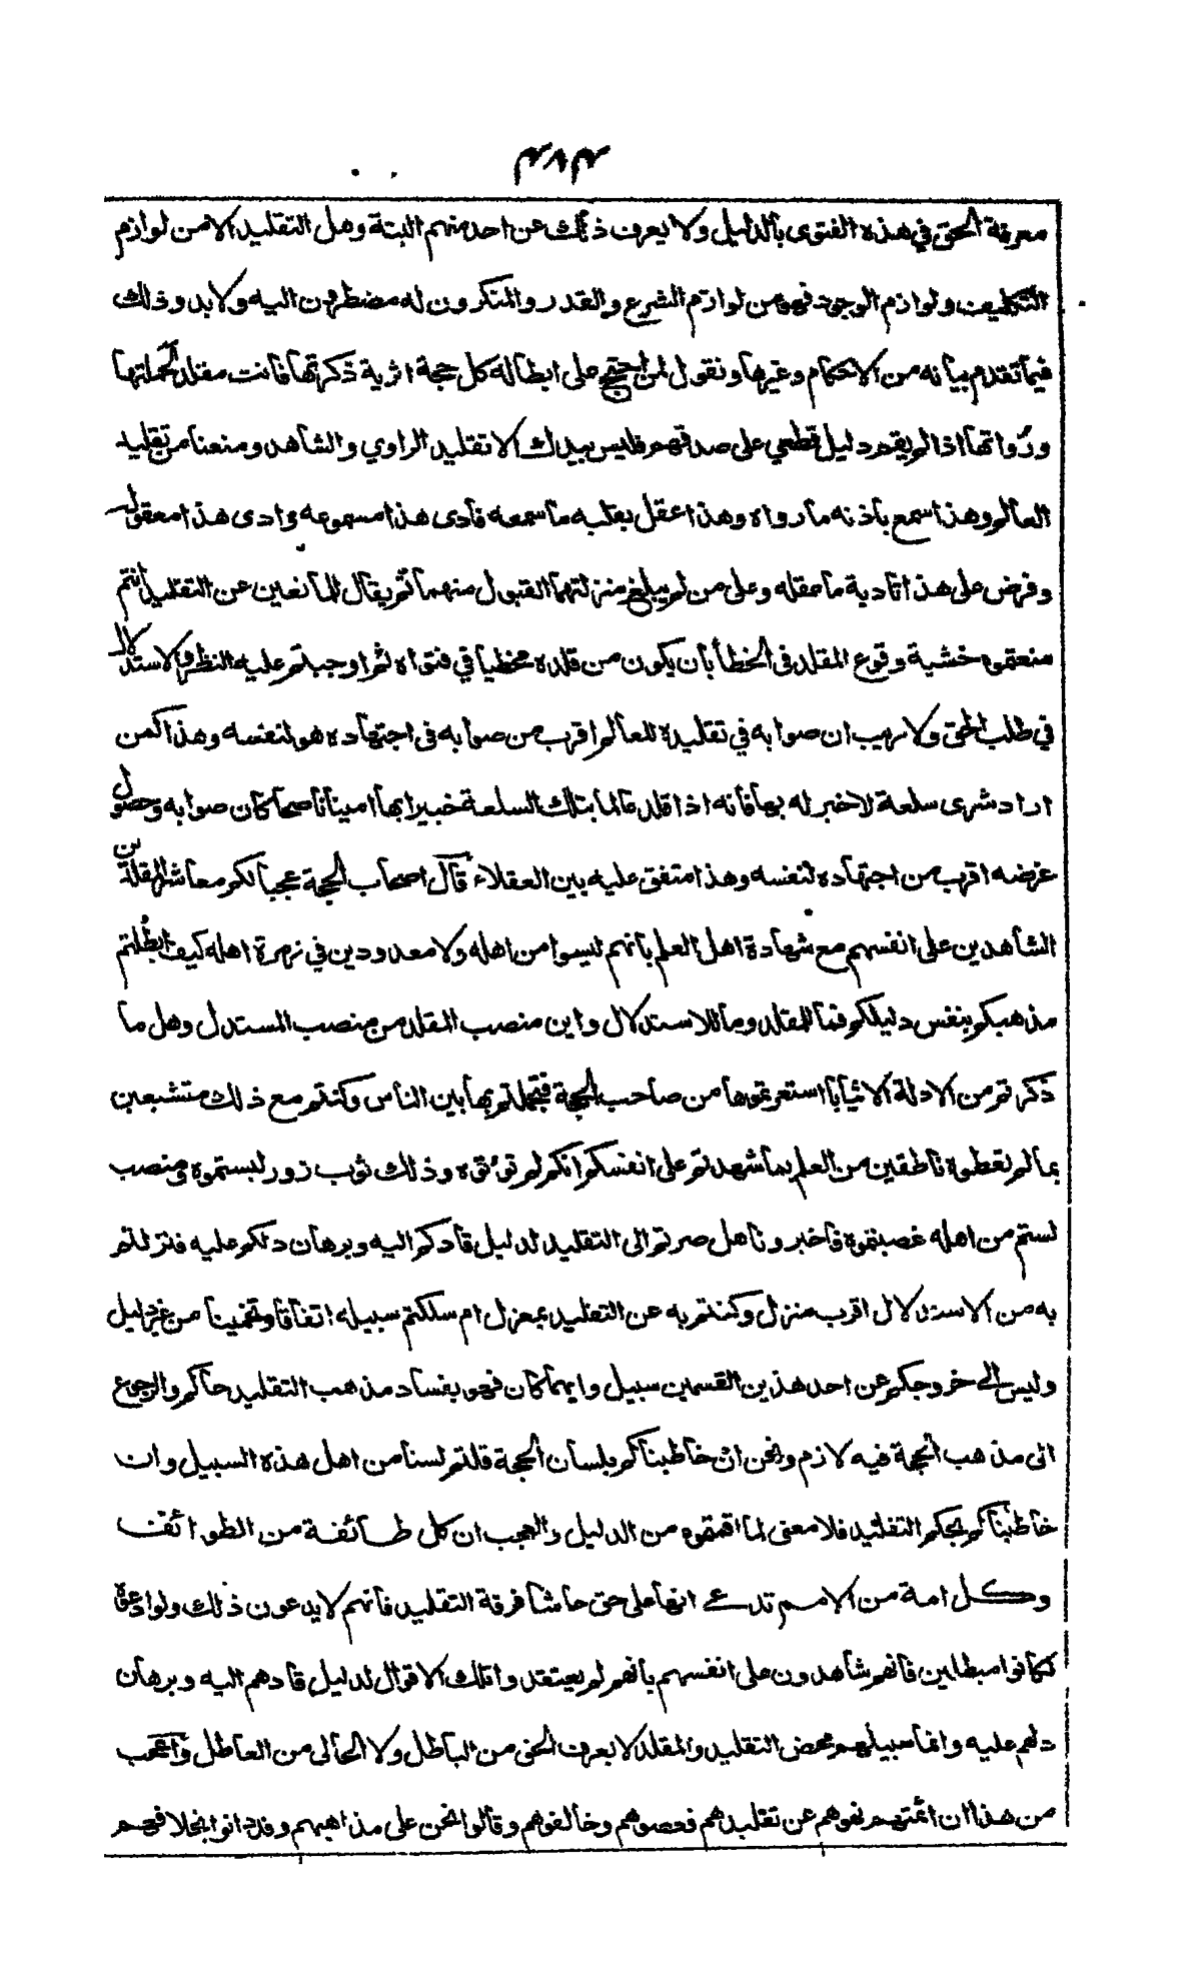 ٣٨٣
معرفة الحق في هذه الفتوى بالدليل ولا يعرف ذلك عن احد منهم البتة وهل التقليد الا من لوازم
التكليف ولوازم الوجود فهو من لوازم الشرع والقدر والمنكرون له مضطرون اليه ولا بد وذلك
فيما تقدم بيانه من الاحكام وغيرها ونقول لمن احتج على ابطاله كل حجة اثرية ذكرتها فانت مقلد لحملتها
ورُواتها اذا لم يقم دليل قطعي على صدقهم فليس بيدك الا تقليد الراوي والشاهد ومنعنا من تقليد
العالم وهذا سمع باذنه ما رواه وهذا عقل بقلبه ما سمعه فادى هذا مسموعه وادى هذا معقوله
وفرض على هذا تادية ما عقله وعلى من لم يبلغ منزلتهما القبول منهما ثم يقال للمانعين عن التقليد انتم
منعتموه خشية وقوع المقلد في الخطأ بان يكون من قلده مخطيا في فتواه ثم اوجبتم عليه النظر والاستدلال
في طلب الحق ولا ريب ان صوابه في تقليده للعالم اقرب من صوابه في اجتهاده هو لنفسه وهذا كمن
اراد شرى سلعة لا خبر له بها فانه اذا قلد عالما بتلك السلعة خبيرا بها امينا ناصحا كان صوابه وحصول
غرضه اقرب من اجتهاده لنفسه وهذا متفق عليه بين العقلاء قال اصحاب الحجة عجبا لكم معاشر المقلدين
الشاهدين على انفسهم مع شهادة اهل العلم بانهم ليسوا من اهله ولا معدودين في زمرة اهله كيف ابطلتم
مذهبكم بنفس دليلكم فما للمقلد وما للاستدلال واين منصب المقلد من منصب المستدل وهل ما
ذكرتم من الادلة الا ثيابا استعرتموها من صاحب الحجة فتجملتم بها بين الناس وكنتم مع ذلك متشبعين
بما لم تعطوه ناطقين من العلم بما شهدتم على انفسكم انكم لم توتوه وذلك ثوب زور لبستموه ومنصب
لستم من اهله غصبتموه فاخبرونا هل صرتم الى التقليد لدليل قادكم اليه وبرهان دلكم عليه فنزلتم
به من الاستدلال اقرب منزل وكنتم به عن التقليد بمعزل ام سلكتم سبيله اتفاقا وتخمينا من غير دليل
وليس الى خروجكم عن احد هذين القسمين سبيل وايهما كان فهو بفساد مذهب التقليد حاكم والرجوع
الى مذهب الحجة فيه لازم ونحن ان خاطبناكم بلسان الحجة قلتم لسنا من اهل هذه السبيل وان
خاطبناكم بحكم التقليد فلا معنى لما اقمتموه من الدليل والعجب ان كل طائفة من الطوائف
وكل امة من الامم تدعى انها على حق حاشا فرقة التقليد فانهم لا يدعون ذلك ولو ادعوه
لكانوا مبطلين فانهم شاهدون على انفسهم بانهم لم يعتقدوا تلك الاقوال لدليل قادهم اليه وبرهان
دلهم عليه وانما سبيلهم محض التقليد والمقلد لا يعرف الحق من الباطل ولا الحالي من العاطل واعجب
من هذا ان ائمتهم نهوهم عن تقليدهم فعصوهم وخالفوهم وقالوا نحن على مذاهبهم وقد دانوا بخلافهم